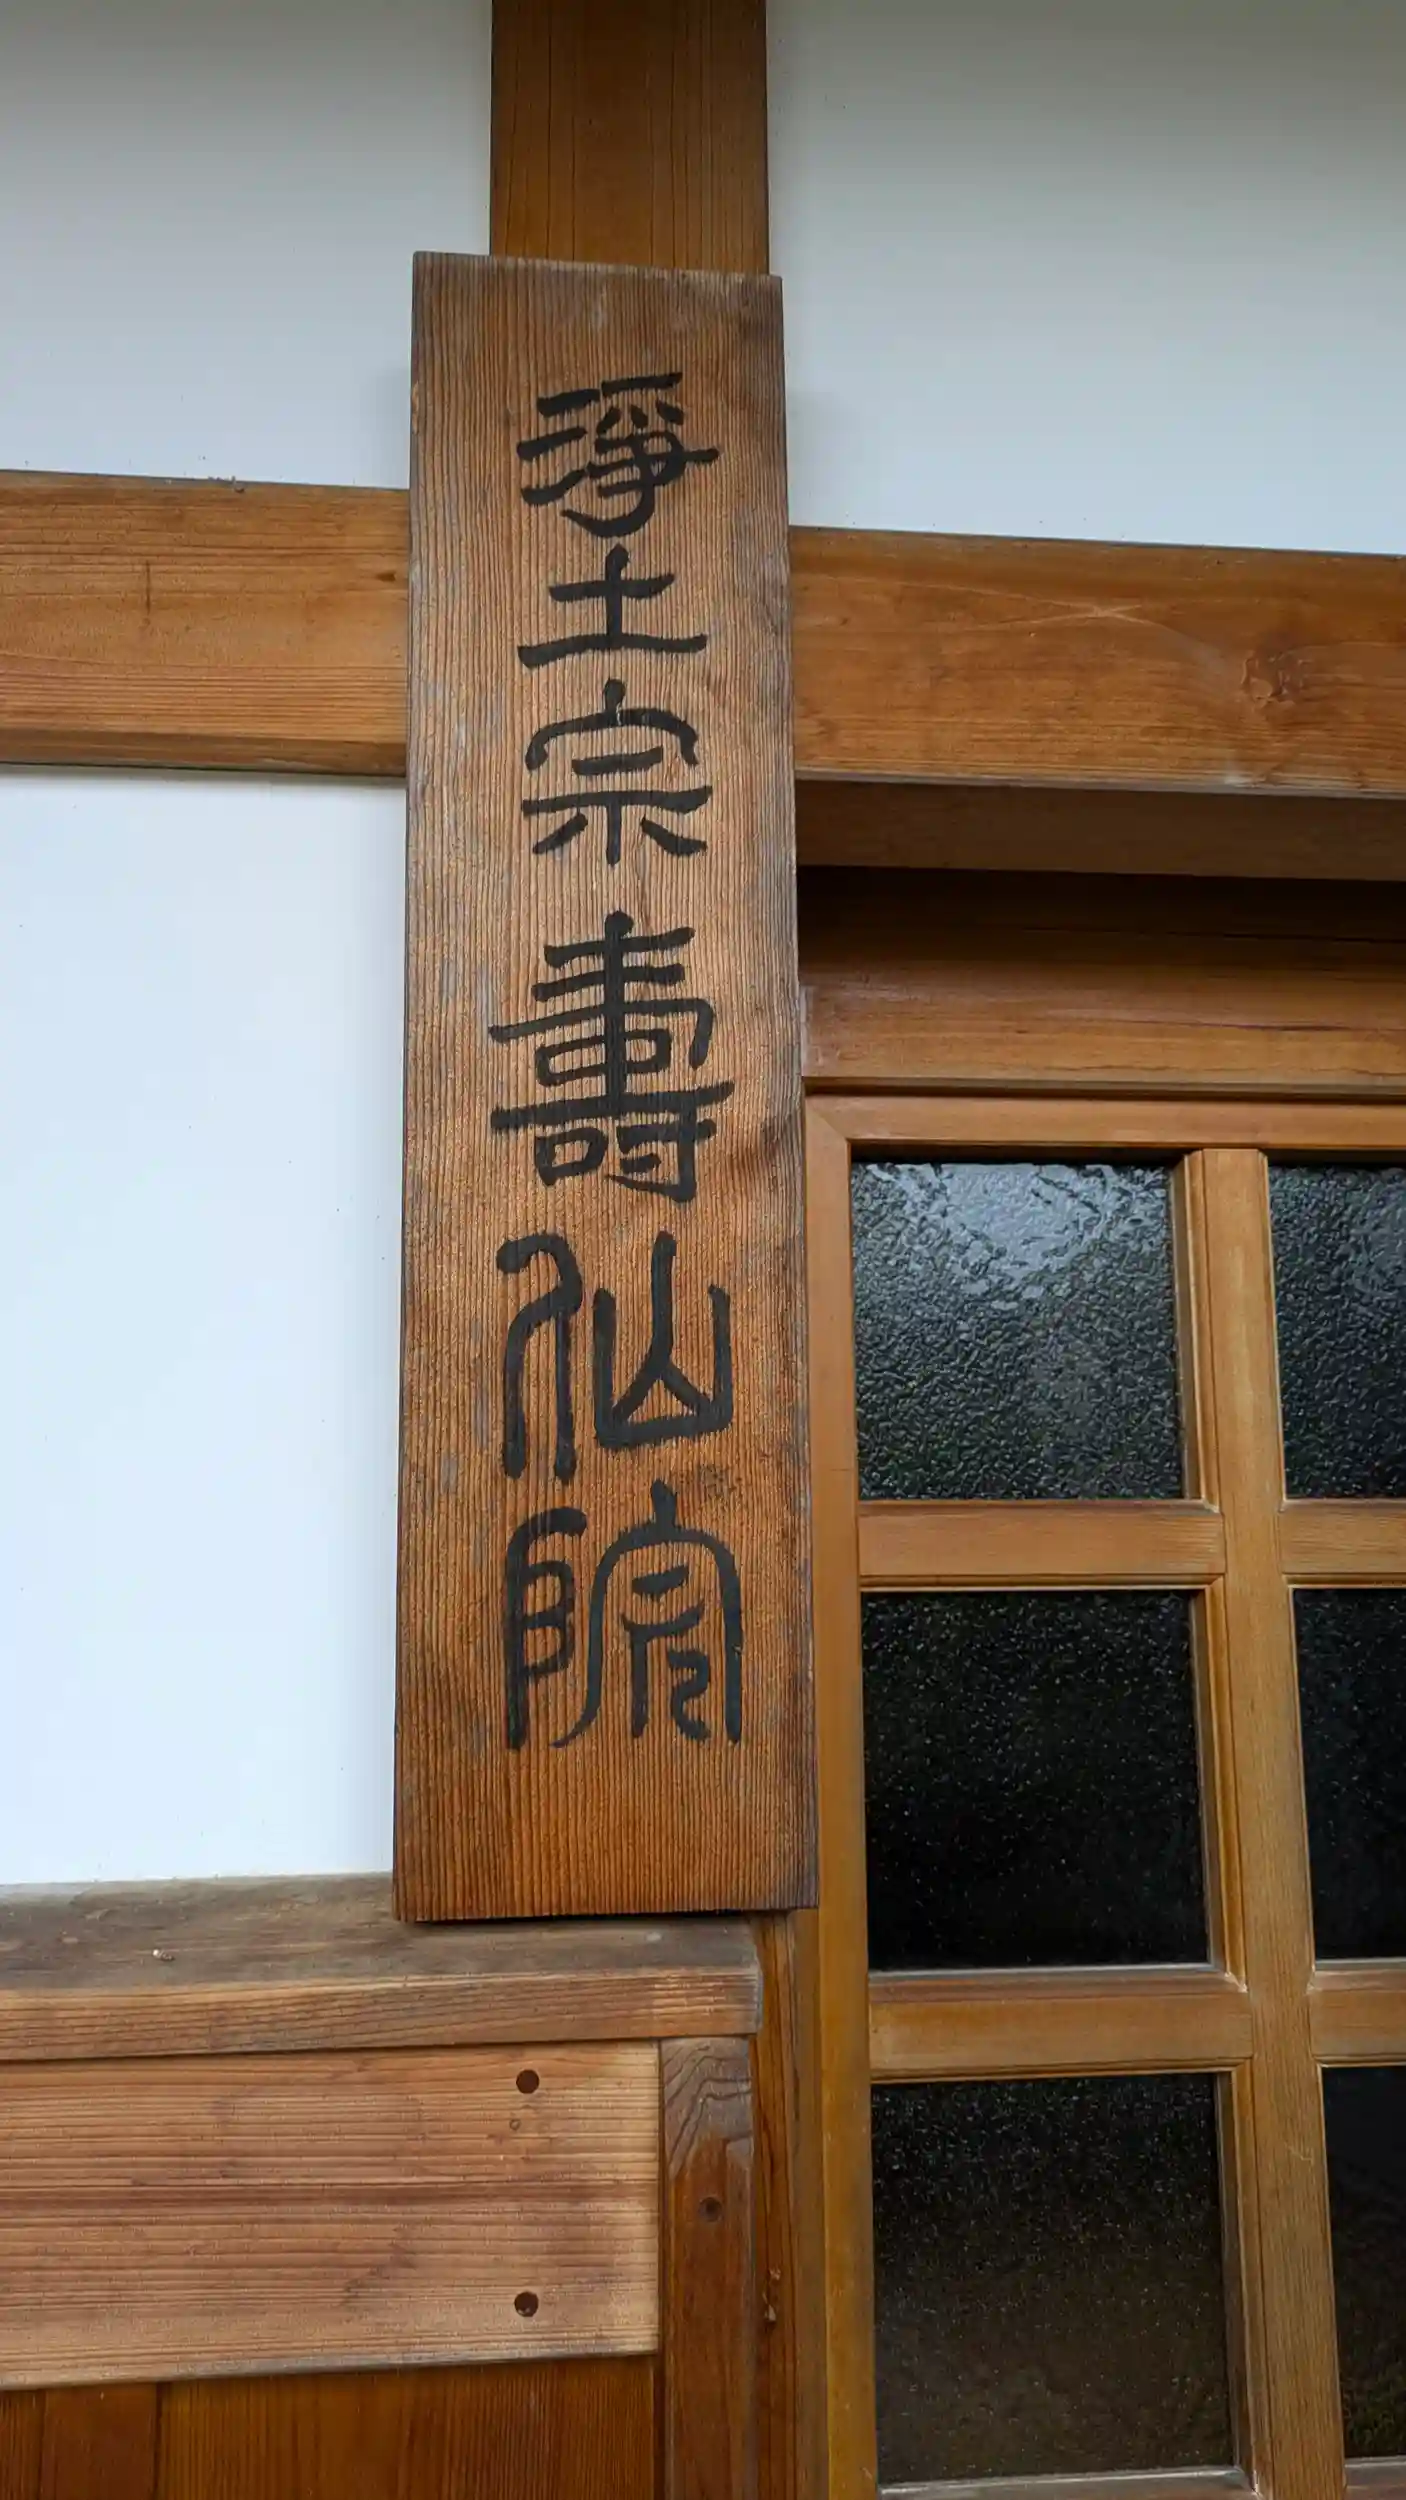 淨土宗壽仙院